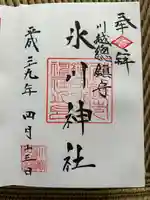 奉拝
川越總鎮守
氷川神社
平成二九年四月二十三日